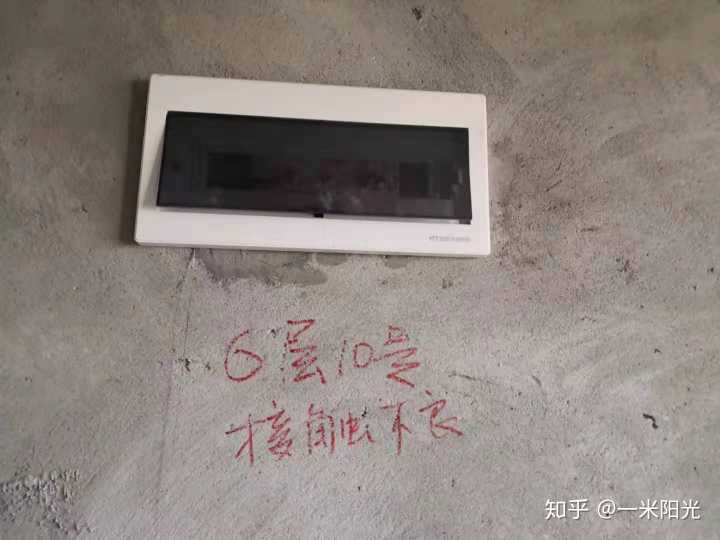 6层10号
接触不良
知乎 @一米阳光